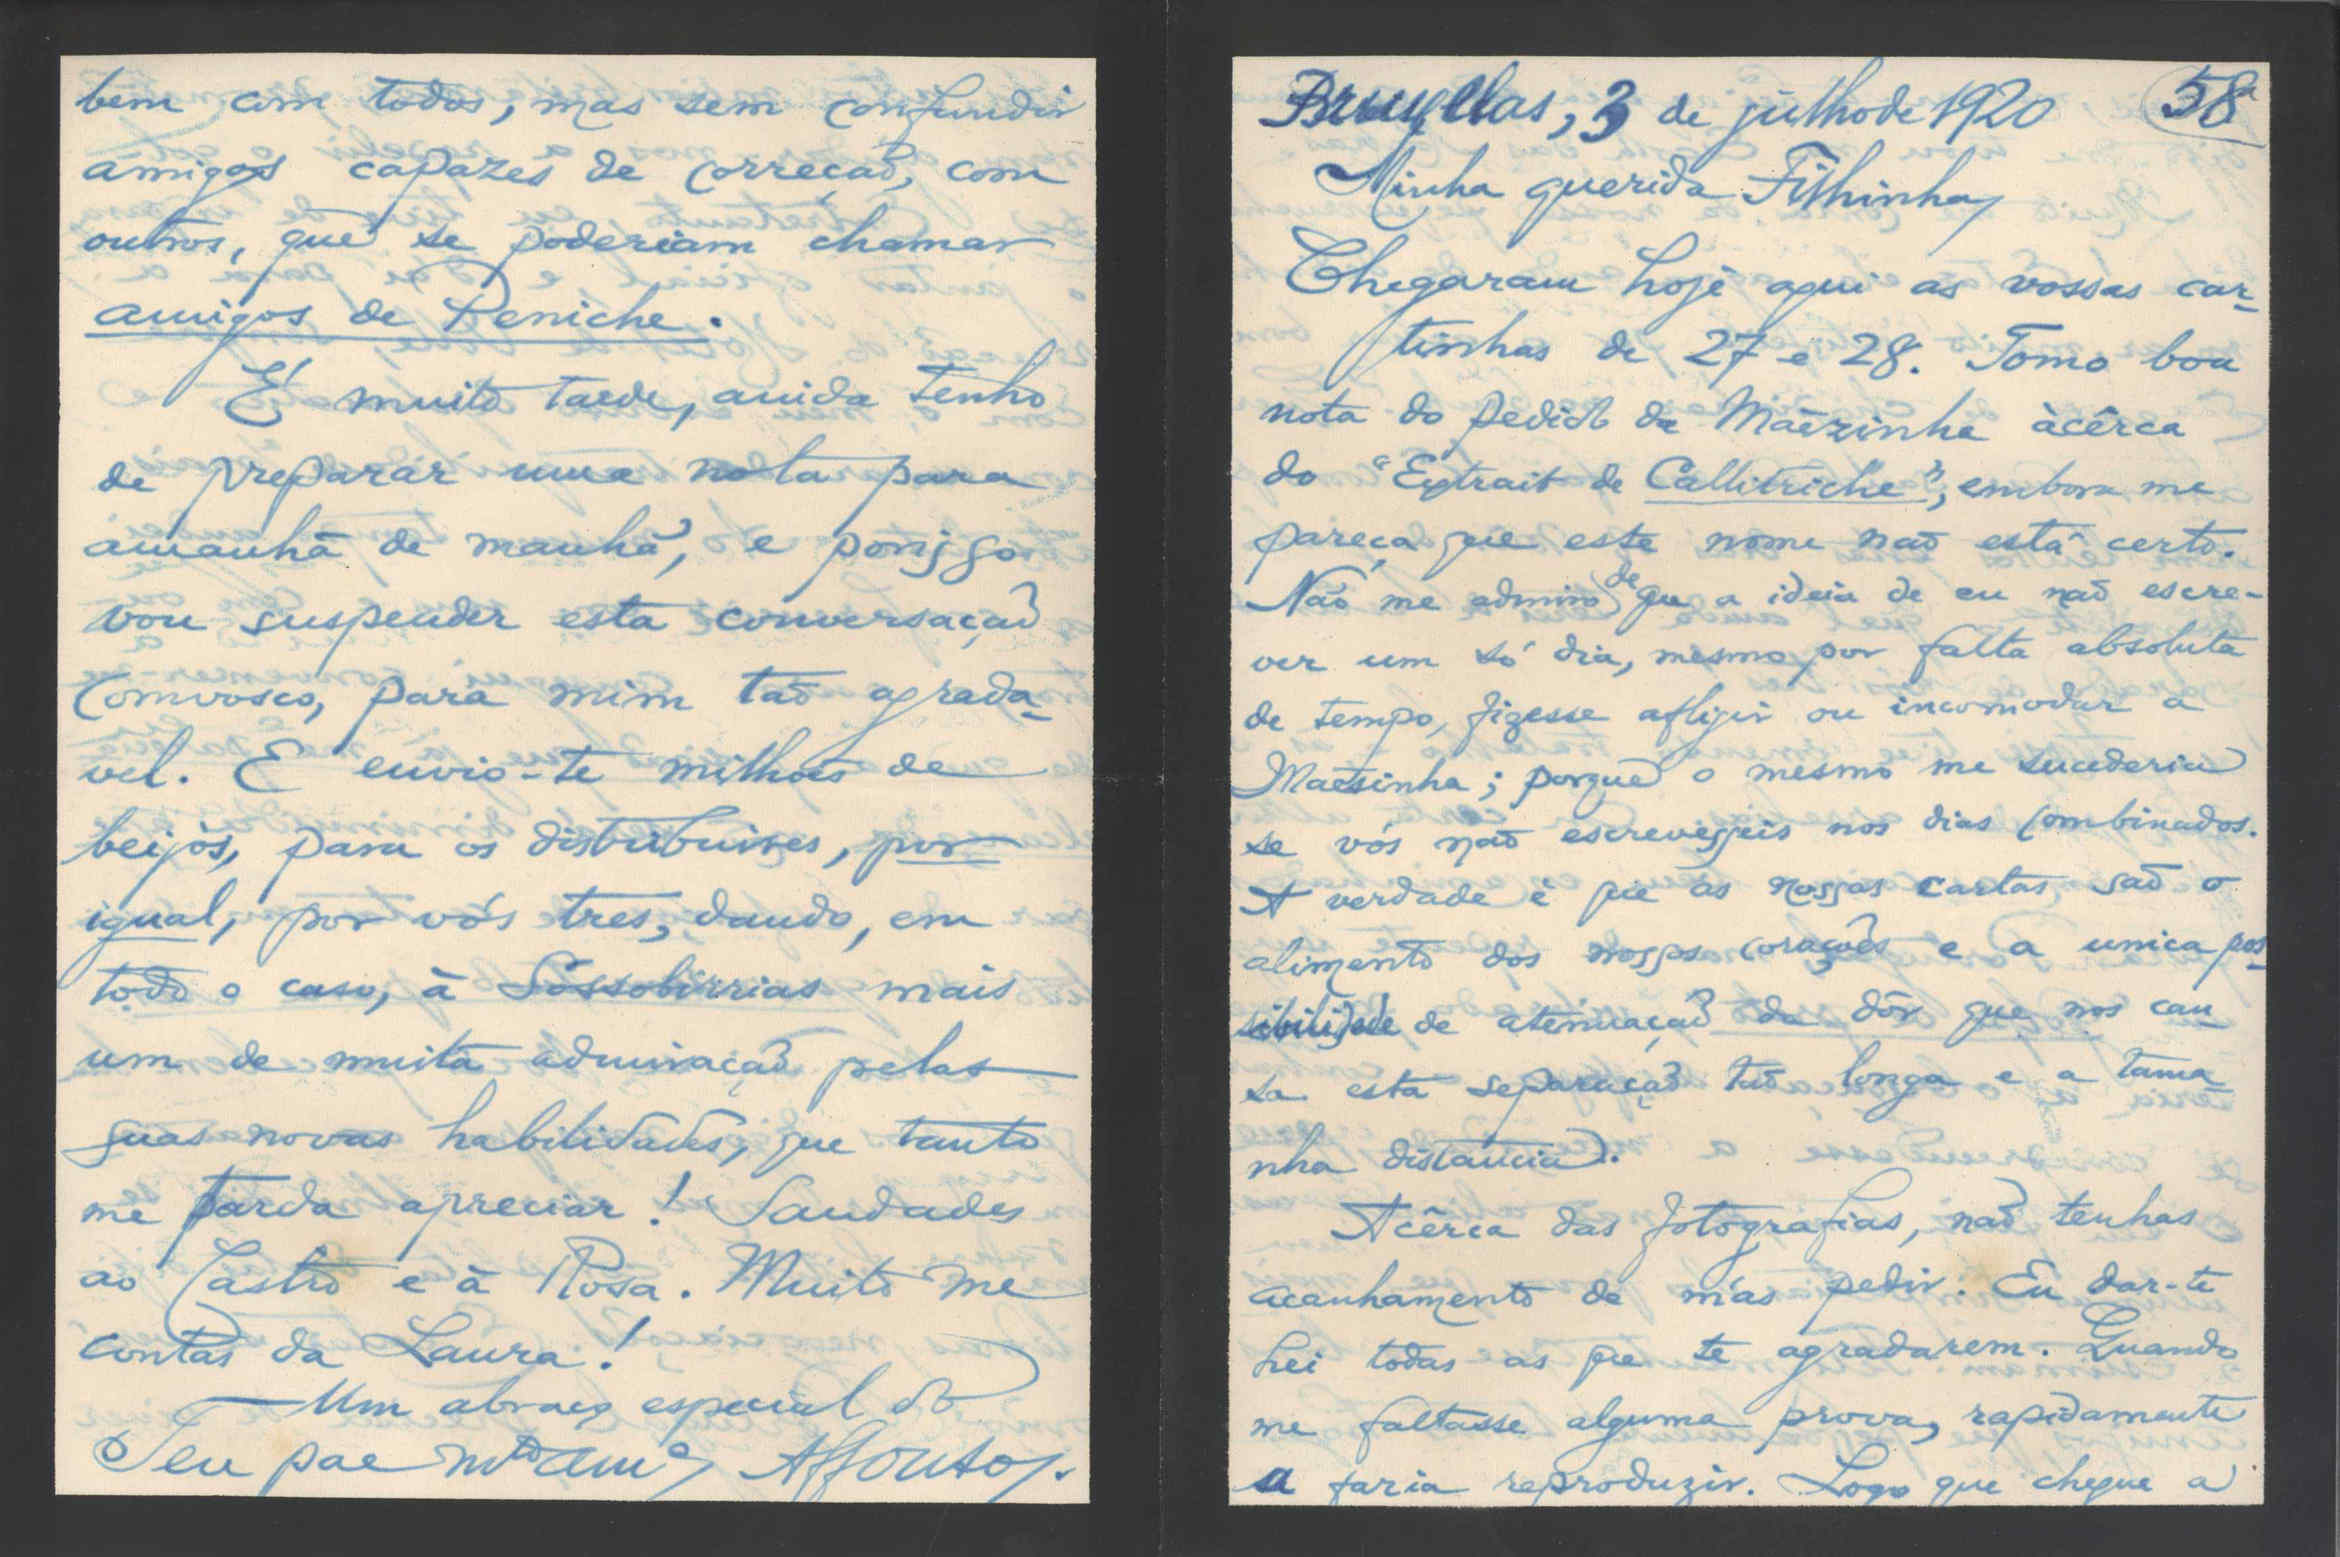 bem com todos, mas sem confundir
amigos capazes de correcção, com
outros, que se poderiam chamar
amigos de Peniche.
É muito tarde, ainda tenho
de preparar uma nota para
ámanhã de manhã, e porisso
vou suspender esta conversação
comvosco, para mim tão agrada-
vel. E envio-te milhões de
beijos, para os distribuires, por
igual, por vós tres, dando, em
todo o caso, à Sóssobirrias mais
um de muita admiração pelas
suas novas habilidades, que tanto
me tarda apreciar! Saudades
ao Castro e à Rosa. Muito me
contas da Laura!
— Um abraço especial do
Teu pae mto amo Affonso.
Bruxellas, 3 de julho de 1920 58ª
Minha querida Filhinha,
Chegaram hoje aqui as vossas car-
tinhas de 27 e 28. Tomo boa
nota do pedido da Mãezinha àcêrca
do "Extrait de Callitriche", embora me
pareça que este nome não está certo.
Não me admiro de que a ideia de eu não escre-
ver um só dia, mesmo por falta absoluta
de tempo, fizesse afligir ou incomodar a
Mãesinha; porque o mesmo me sucederia
se vós não escrevesseis nos dias combinados.
A verdade é que as nossas cartas são o
alimento dos nossos corações e a unica pos-
sibilidade de atenuação da dôr que nos cau-
sa esta separação tão longa e a tama-
nha distancia.
Acêrca das fotografias, não tenhas
acanhamento de m'as pedir. Eu dar-te
hei todas as que te agradarem. Quando
me faltasse alguma prova, rapidamente
a faria reproduzir. Logo que chegue a